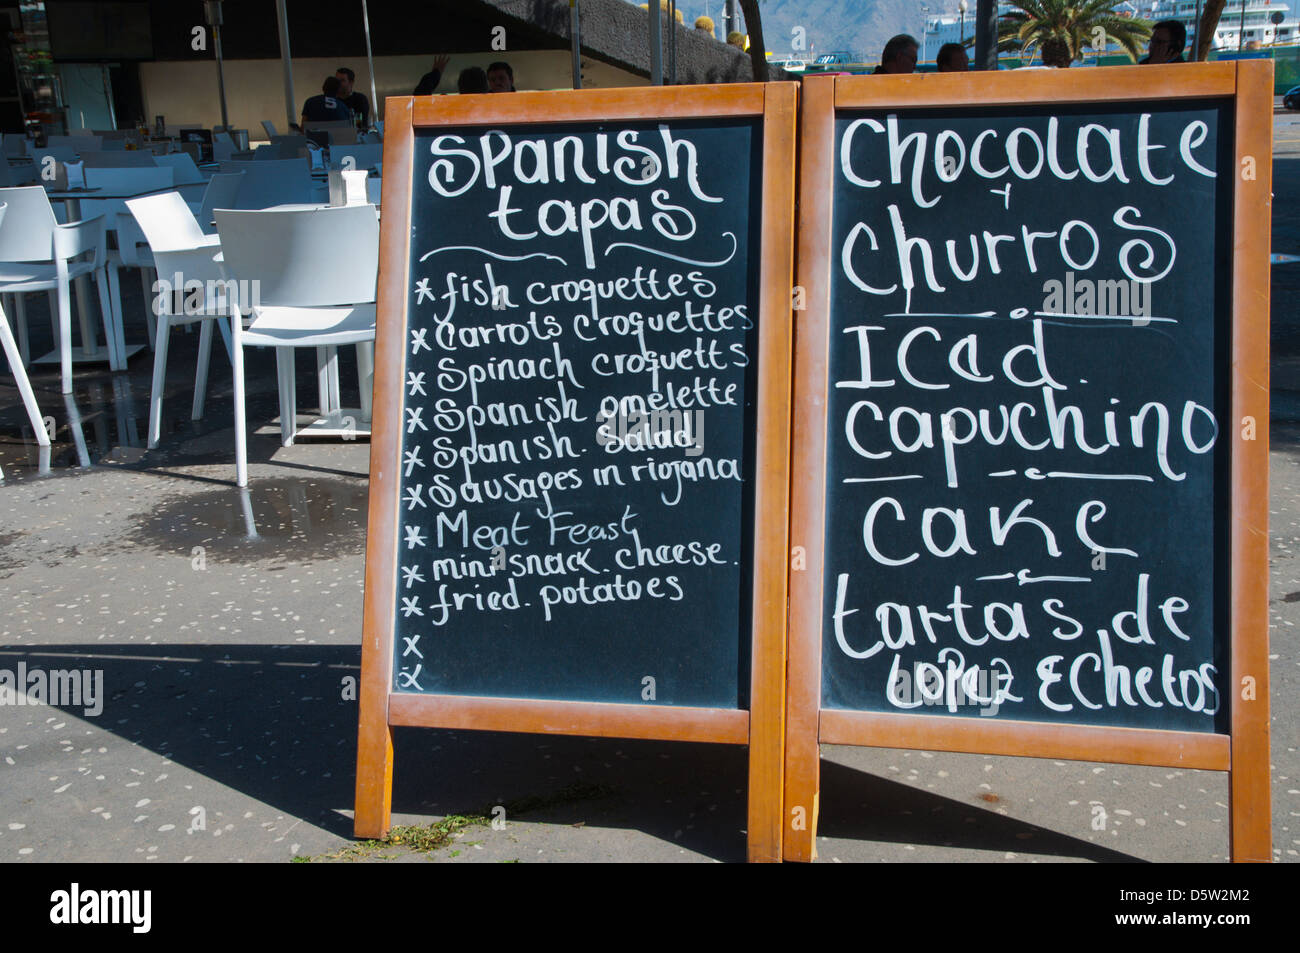 Spanish
tapas
* fish croquettes
* Carrots croquettes
* Spinach croquetts
* Spanish omelette.
* Spanish. Salad
* Sausages in riojana
* Meat Feast
* mini snack. cheese.
* fried. potatoes
x
x
Chocolate
+
Churros
Iced.
capuchino
cake
tartas de
LOPEZ & Echetos
5
alamy
Image ID: D5W2M2
www.alamy.com